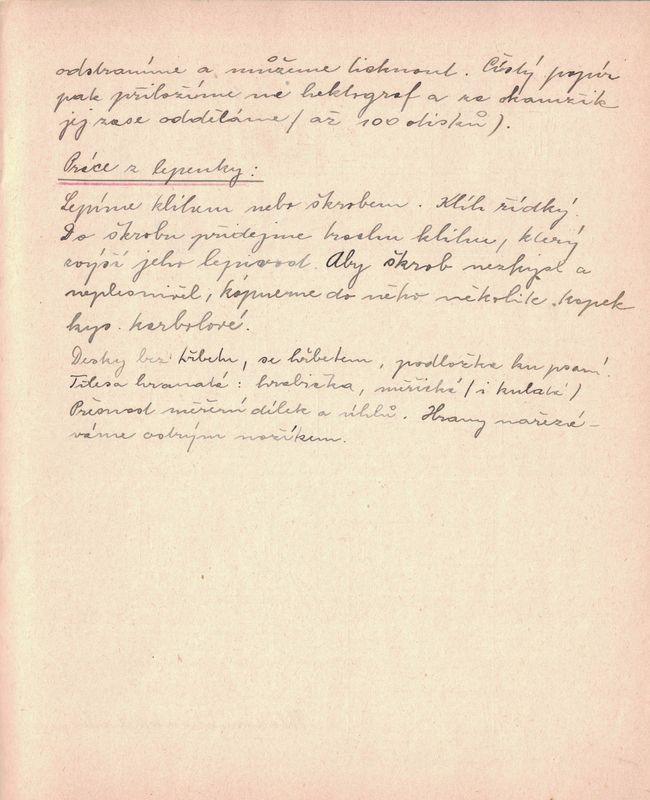 odstraníme a můžeme tisknout. Čistý papír
pak přiložíme na hektograf a za okamžik
jej zase odděláme (až 100 otisků).
Práce z lepenky:
Lepíme klihem nebo škrobem. Klih řídký.
Do škrobu přidejme trochu klihu, který
zvýší jeho lepivost. Aby škrob nezkysl a
neplesnivěl, kápneme do něho několik kapek
kys. karbolové.
Desky bez hřbetu, se hřbetem, podložka ku psaní.
Tělesa hranatá: krabička, (i kulatá)
Přesnost měření délek a úhlů. Hrany nařezá-
váme ostrým nožíkem.